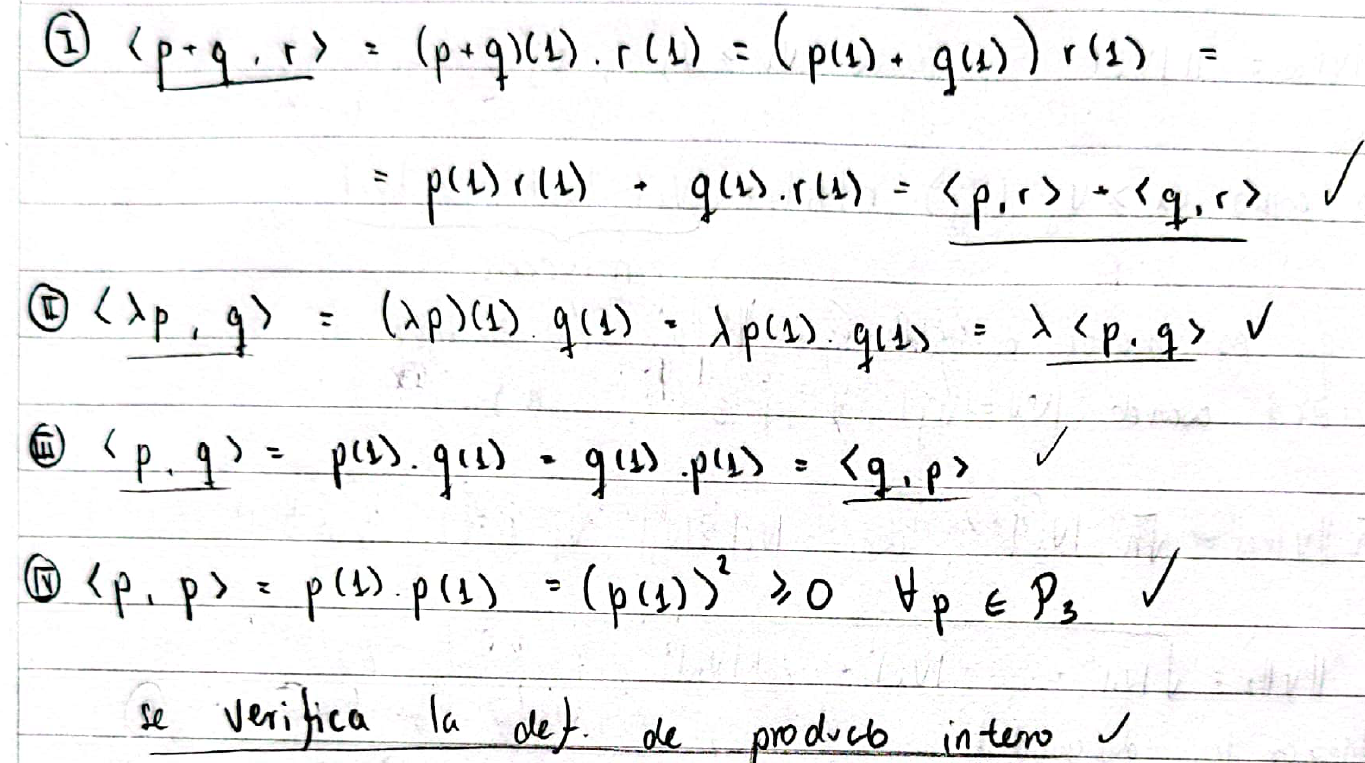 Ⓘ <p+q, r> = (p+q)(1). r(1) = (p(1) + q(1)) r(1) =
= p(1) r(1) + q(1). r(1) = <p, r> + <q, r> ✓
Ⓘⓘ <λp, q> = (λp)(1). q(1) = λp(1). q(1) = λ <p, q> ✓
Ⓘⓘⓘ <p, q> = p(1). q(1) = q(1). p(1) = <q, p> ✓
Ⓘⓥ <p, p> = p(1). p(1) = (p(1))² ≥ 0 ∀p ∈ P₃ ✓
se verifica la def. de producto interno ✓